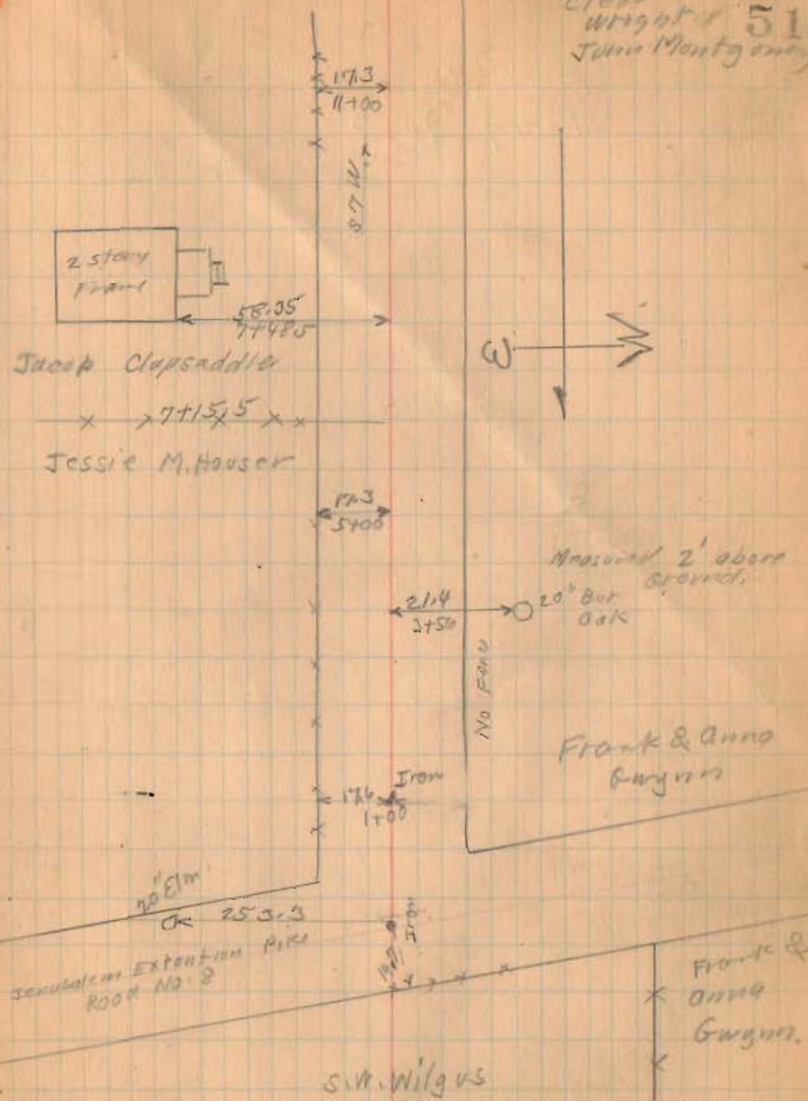 Wright &
51
John Montgomery
17.3
11+00
S 7 W.
2 story
Frame
58.35
7+48.5
Jacob Clapsaddler
7+15.5
Jessie M. Houser
17.3
5+00
Measured 2' above
Ground.
21.4
3+50
20" Bur
Oak
No Fence
Frank & Anna
Gwynn
Iron
17.6
1+00
20" Elm
253.3
Iron
Jerusalem Extention Pike
Road No. 8
Frank &
Anna
Gwynn.
S.W. Wilgus